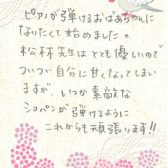 ピアノが弾けるおばあちゃんに
なりたくて始めました。
松林先生はとても優しいので
ついつい自分に甘くなってしまい
ますが、いつか素敵な
ショパンが弾けるように
これからも頑張います!!